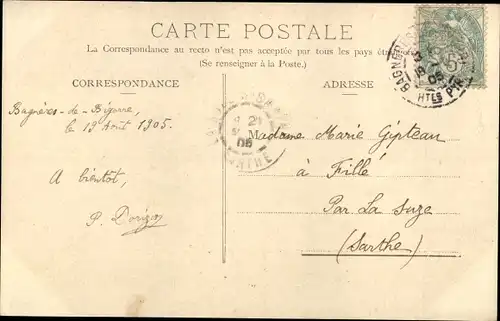 CARTE POSTALE
La Correspondance au recto n'est pas acceptée par tous les pays
(Se renseigner à la Poste.)
CORRESPONDANCE
ADRESSE
Bagnères-de-Bigorre,
le 19 Août 1905.
A bientôt,
P. Dorizon
Madame Marie Gipteau
à Fillé
Par La Suze
(Sarthe)
HTES PYR
21
05